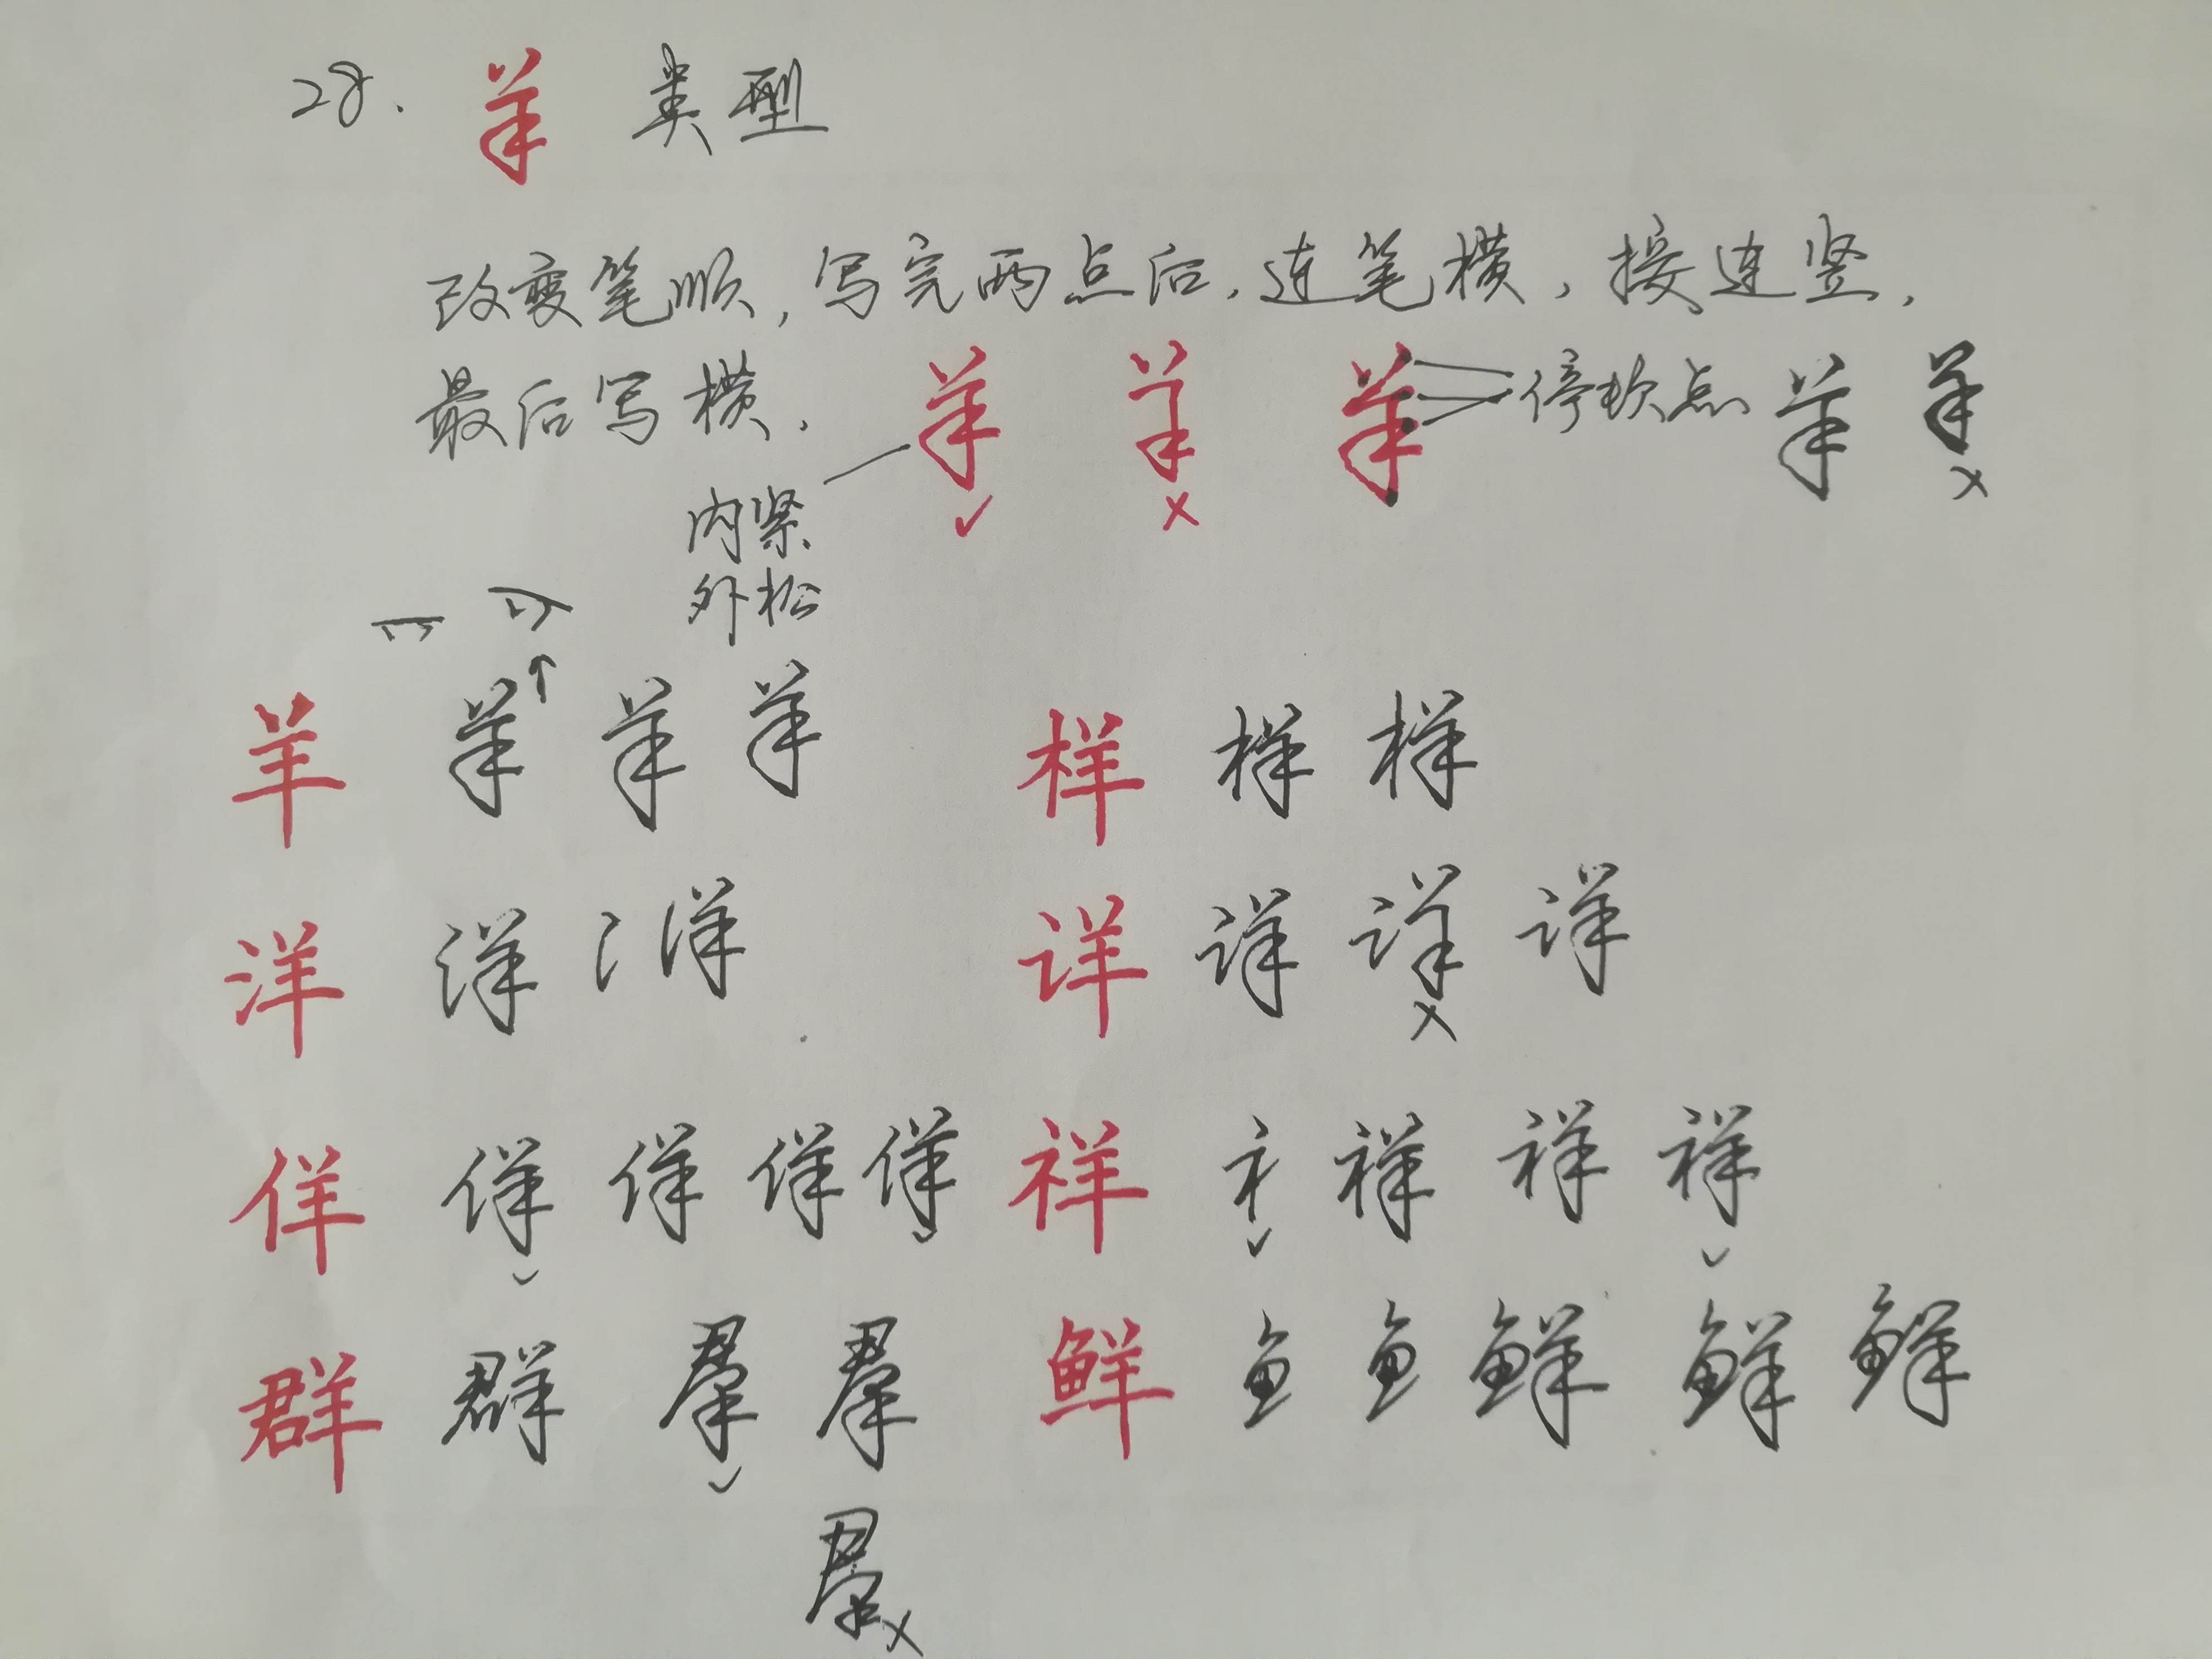 28. 羊 类型
改变笔顺，写完两点后，连笔横，接连竖，
最后写横． 羊 ✓ 羊 × 羊 停顿点 羊 羊 ×
内紧
外松
羊 羊 羊 羊 样 样 样
洋 洋 氵 洋 详 详 详 × 详
佯 佯 ✓ 佯 佯 佯 ✓ 祥 礻 ✓ 祥 祥 祥 ✓
群 群 羣 ✓ 羣 鲜 鱼 鱼 鲜 鲜 鲜
羣 ×